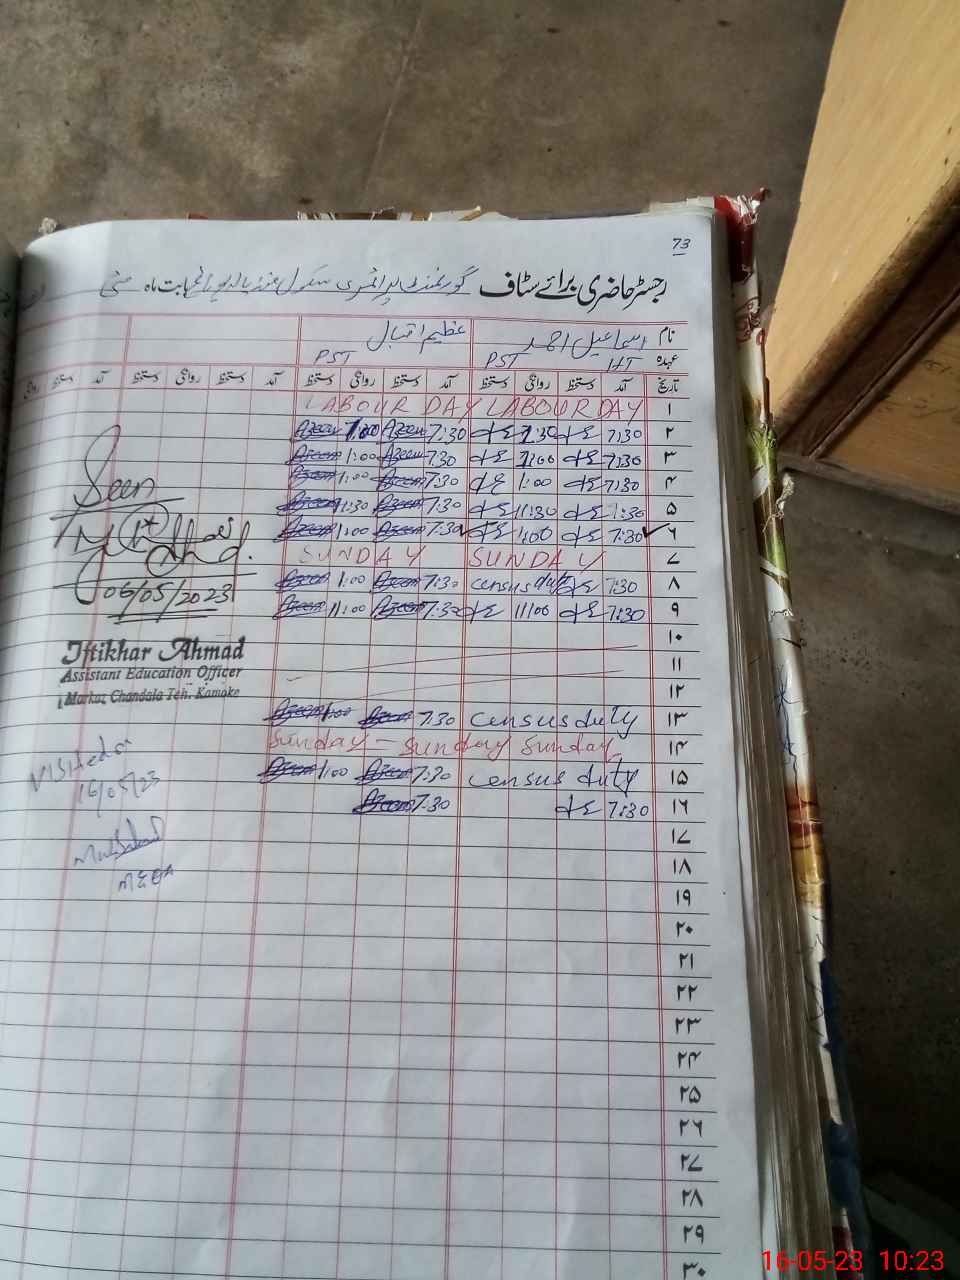 73
رجسٹر حاضری برائے سٹاف گورنمنٹ پرائمری سکول بابت ماہ مئی
نام اسماعیل احمد عظیم اقبال
عہدہ HT PST PST
تاریخ آمد دستخط روانگی دستخط آمد دستخط روانگی دستخط آمد دستخط روانگی دستخط آمد دستخط روانگی
۱ LABOUR DAY LABOUR DAY
۲ 7:30 1:30 7:30 Azeem 1:00 Azeem
۳ 7:30 1:00 7:30 Azeem 1:00 Azeem
۴ 7:30 1:00 7:30 Azeem 1:00 Azeem
۵ 7:30 11:30 7:30 Azeem 11:30 Azeem
۶ 7:30 1:00 7:30 Azeem 1:00 Azeem
۷ SUNDAY SUNDAY
۸ 7:30 census duty 7:30 Azeem 1:00 Azeem
۹ 7:30 1:00 7:30 Azeem 1:00 Azeem
۱۰
۱۱
۱۲
۱۳ census duty 7:30 Azeem 1:00 Azeem
۱۴ Sunday - Sunday Sunday
۱۵ census duty 7:30 Azeem 1:00 Azeem
۱۶ 7:30 7:30 Azeem
۱۷
۱۸
۱۹
۲۰
۲۱
۲۲
۲۳
۲۴
۲۵
۲۶
۲۷
۲۸
۲۹
۳۰
Seen
06/05/2023
Iftikhar Ahmad
Assistant Education Officer
Markaz Chandala Teh. Kamoke
Visited at
16/05/23
MEA
16-05-23 10:23